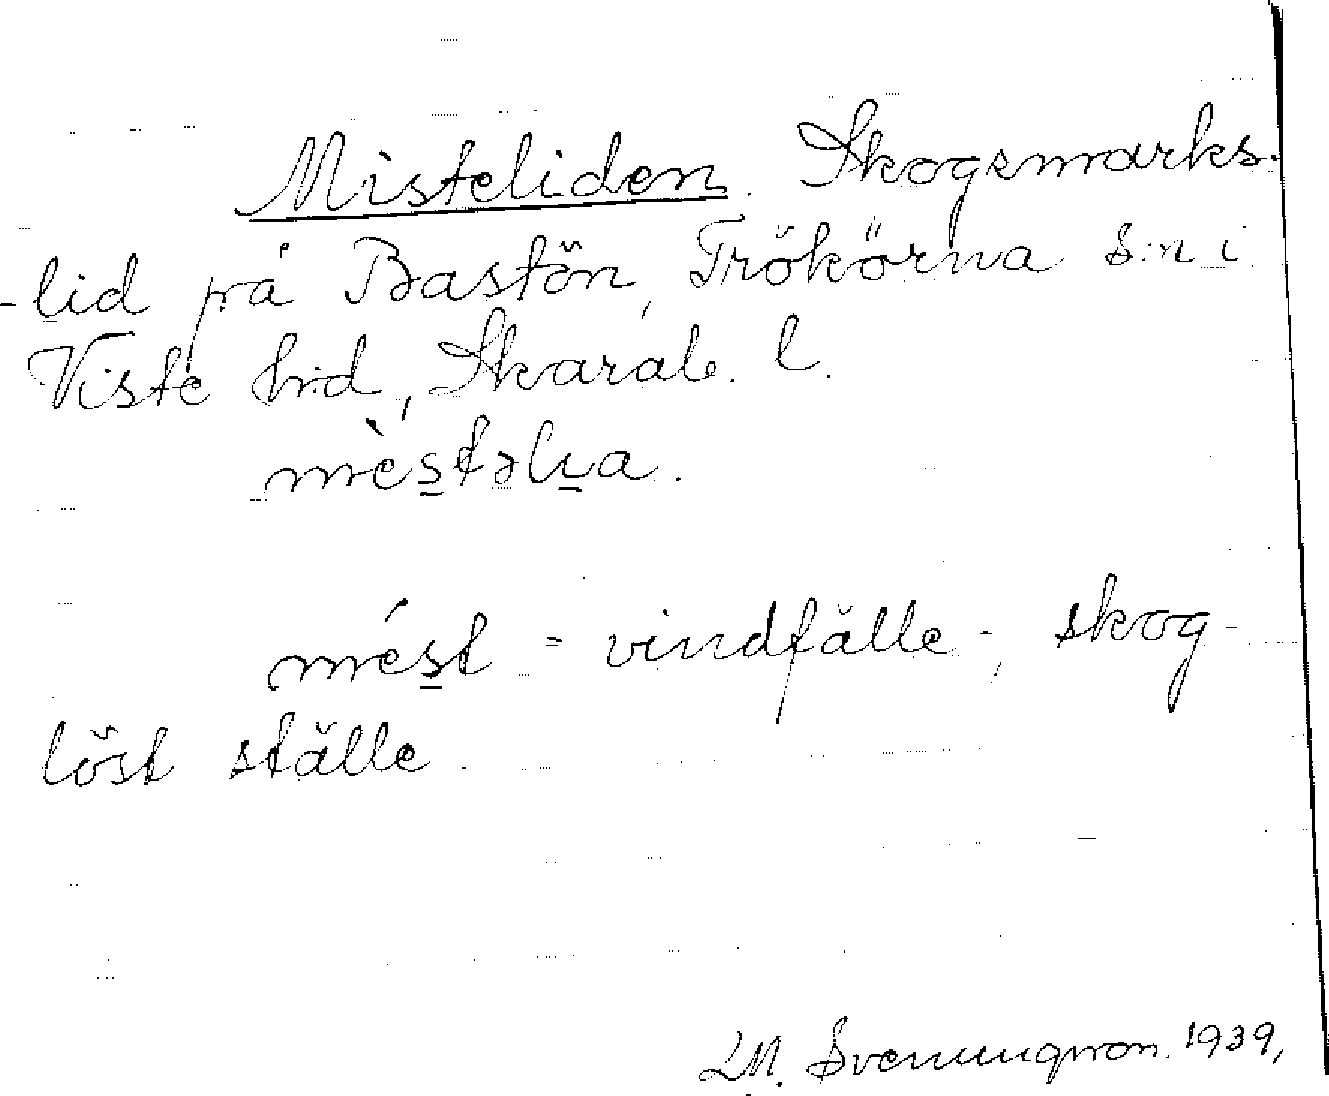 Misteliden. Skogsmarks-
-lid på Bastön, Trökörna s:n i
Viste hrd, Skarab. l.
mèstəlia.
mést = vindfälle -, skog-
löst ställe.
LM. Svenungsson. 1939,